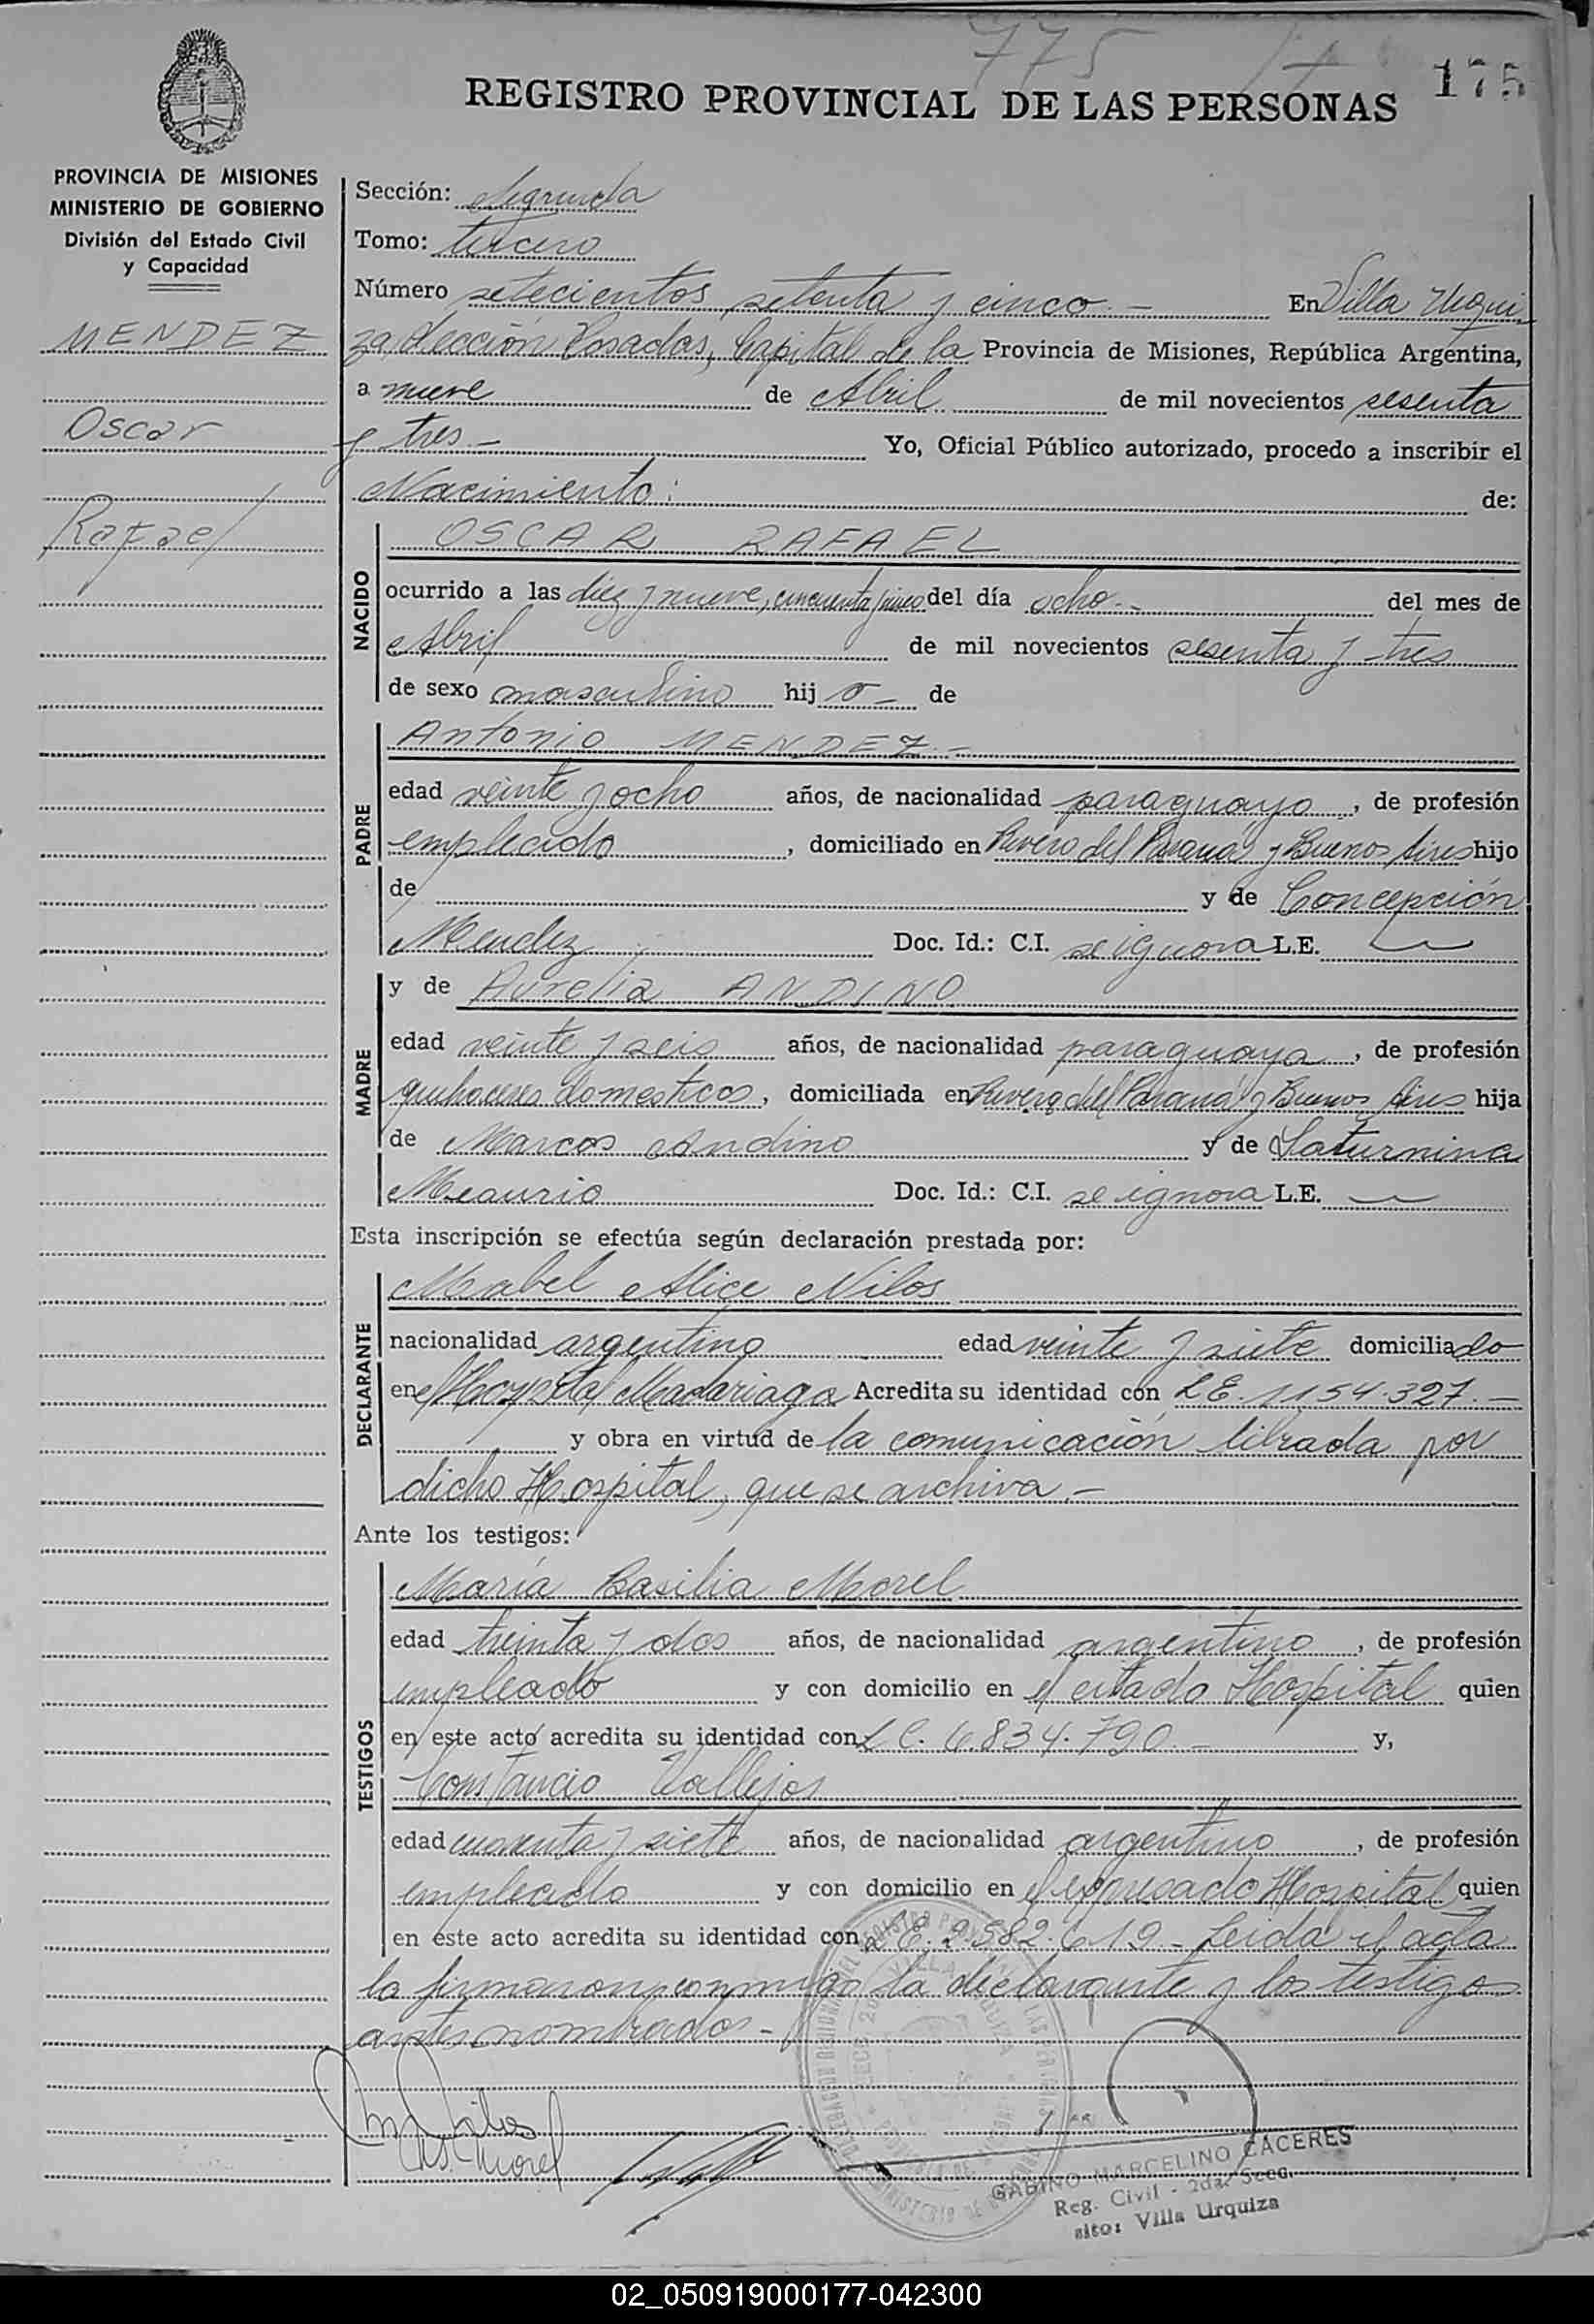 775
175
REGISTRO PROVINCIAL DE LAS PERSONAS
PROVINCIA DE MISIONES
MINISTERIO DE GOBIERNO
División del Estado Civil
y Capacidad
MENDEZ
Oscar
Rafael
Sección: Segunda
Tomo: tercero
Número setecientos setenta y cinco.- En Villa Urqui
za, Sección Posadas, Capital de la Provincia de Misiones, República Argentina,
a nueve de Abril de mil novecientos sesenta
y tres.- Yo, Oficial Público autorizado, procedo a inscribir el
Nacimiento: de:
NACIDO
OSCAR RAFAEL
ocurrido a las diez y nueve, cincuenta y cinco del día ocho.- del mes de
Abril de mil novecientos sesenta y tres
de sexo masculino hij o- de
PADRE
Antonio MENDEZ.-
edad veinte y ocho años, de nacionalidad paraguayo, de profesión
empleado, domiciliado en Rivera del Paraná y Buenos Aires hijo
de y de Concepción
Mendez Doc. Id.: C.I. se ignora L.E.
MADRE
y de Aurelia ANDINO
edad veinte y seis años, de nacionalidad paraguaya, de profesión
quehaceres domesticos, domiciliada en Rivera del Paraná y Buenos Aires hija
de Marcos Andino y de Saturnina
Meaurio Doc. Id.: C.I. se ignora L.E.
Esta inscripción se efectúa según declaración prestada por:
DECLARANTE
Mabel Alice Nilos
nacionalidad argentino edad veinte y siete domiciliado
en Hospital Madariaga Acredita su identidad con L.E. 1154.327.-
y obra en virtud de la comunicación librada por
dicho Hospital, que se archiva.-
Ante los testigos:
TESTIGOS
María Basilia Morel
edad treinta y dos años, de nacionalidad argentino, de profesión
empleado y con domicilio en el citado Hospital quien
en este acto acredita su identidad con L.C. 6.834.790.- y,
Constancio Vallejos
edad cuarenta y siete años, de nacionalidad argentino, de profesión
empleado y con domicilio en el expresado Hospital quien
en éste acto acredita su identidad con L.E. 2.582.619.- Leida el acta
la firmaron conmigo la declarante y los testigos
antes nombrados.-
M. Nilos
M.B. Morel
GABINO MARCELINO CACERES
Reg. Civil - 2da. Secc.
sito: Villa Urquiza
02_050919000177-042300